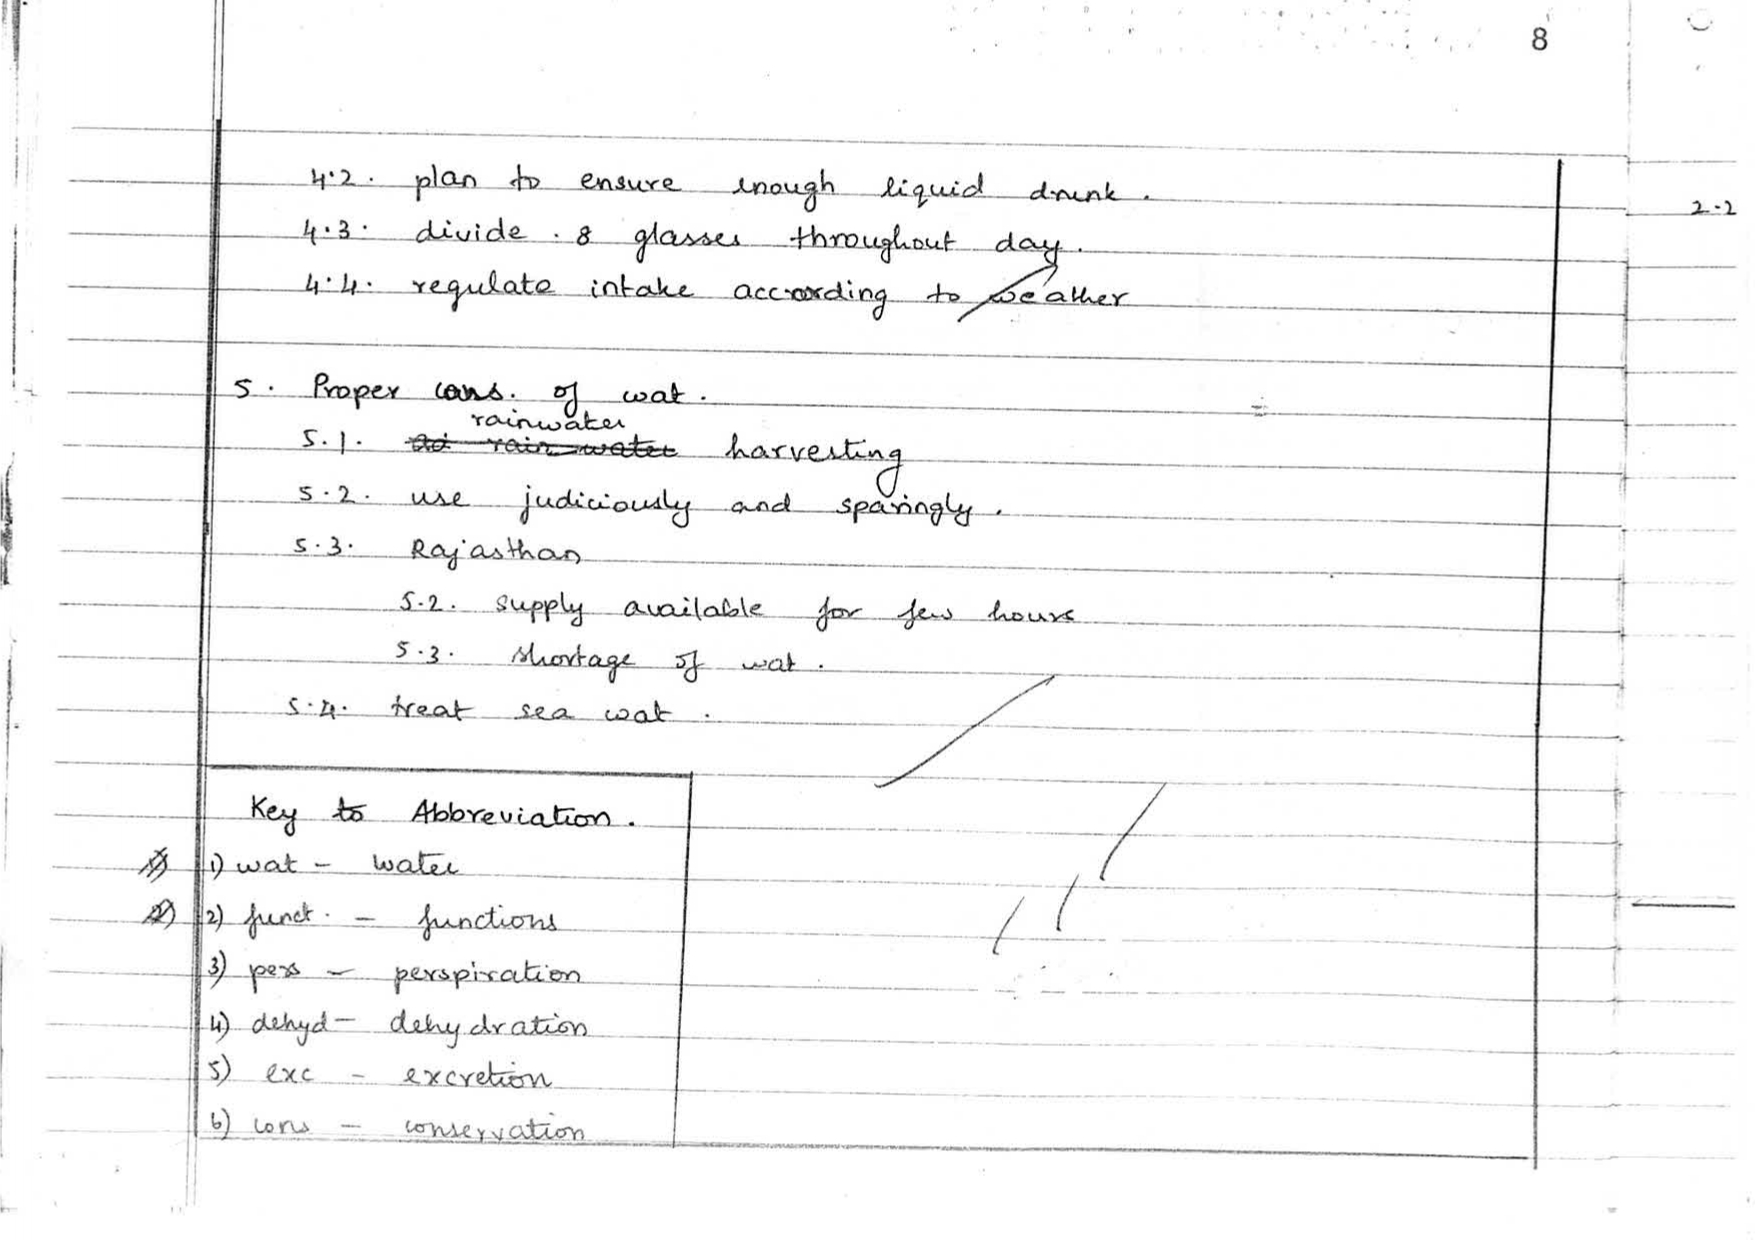 8
4.2. plan to ensure enough liquid drunk.
2.2
4.3. divide. 8 glasses throughout day.
4.4. regulate intake according to weather
5. Proper cons. of wat.
rainwater
5.1. ad rain water harvesting
5.2. use judiciously and sparingly.
5.3. Rajasthan
5.2. supply available for few hours
5.3. shortage of wat.
5.4. treat sea wat.
Key to Abbreviation.
1) 1) wat - water
2) 2) funct. - functions
3) pers - perspiration
4) dehyd - dehydration
5) exc - excretion
6) cons - conservation